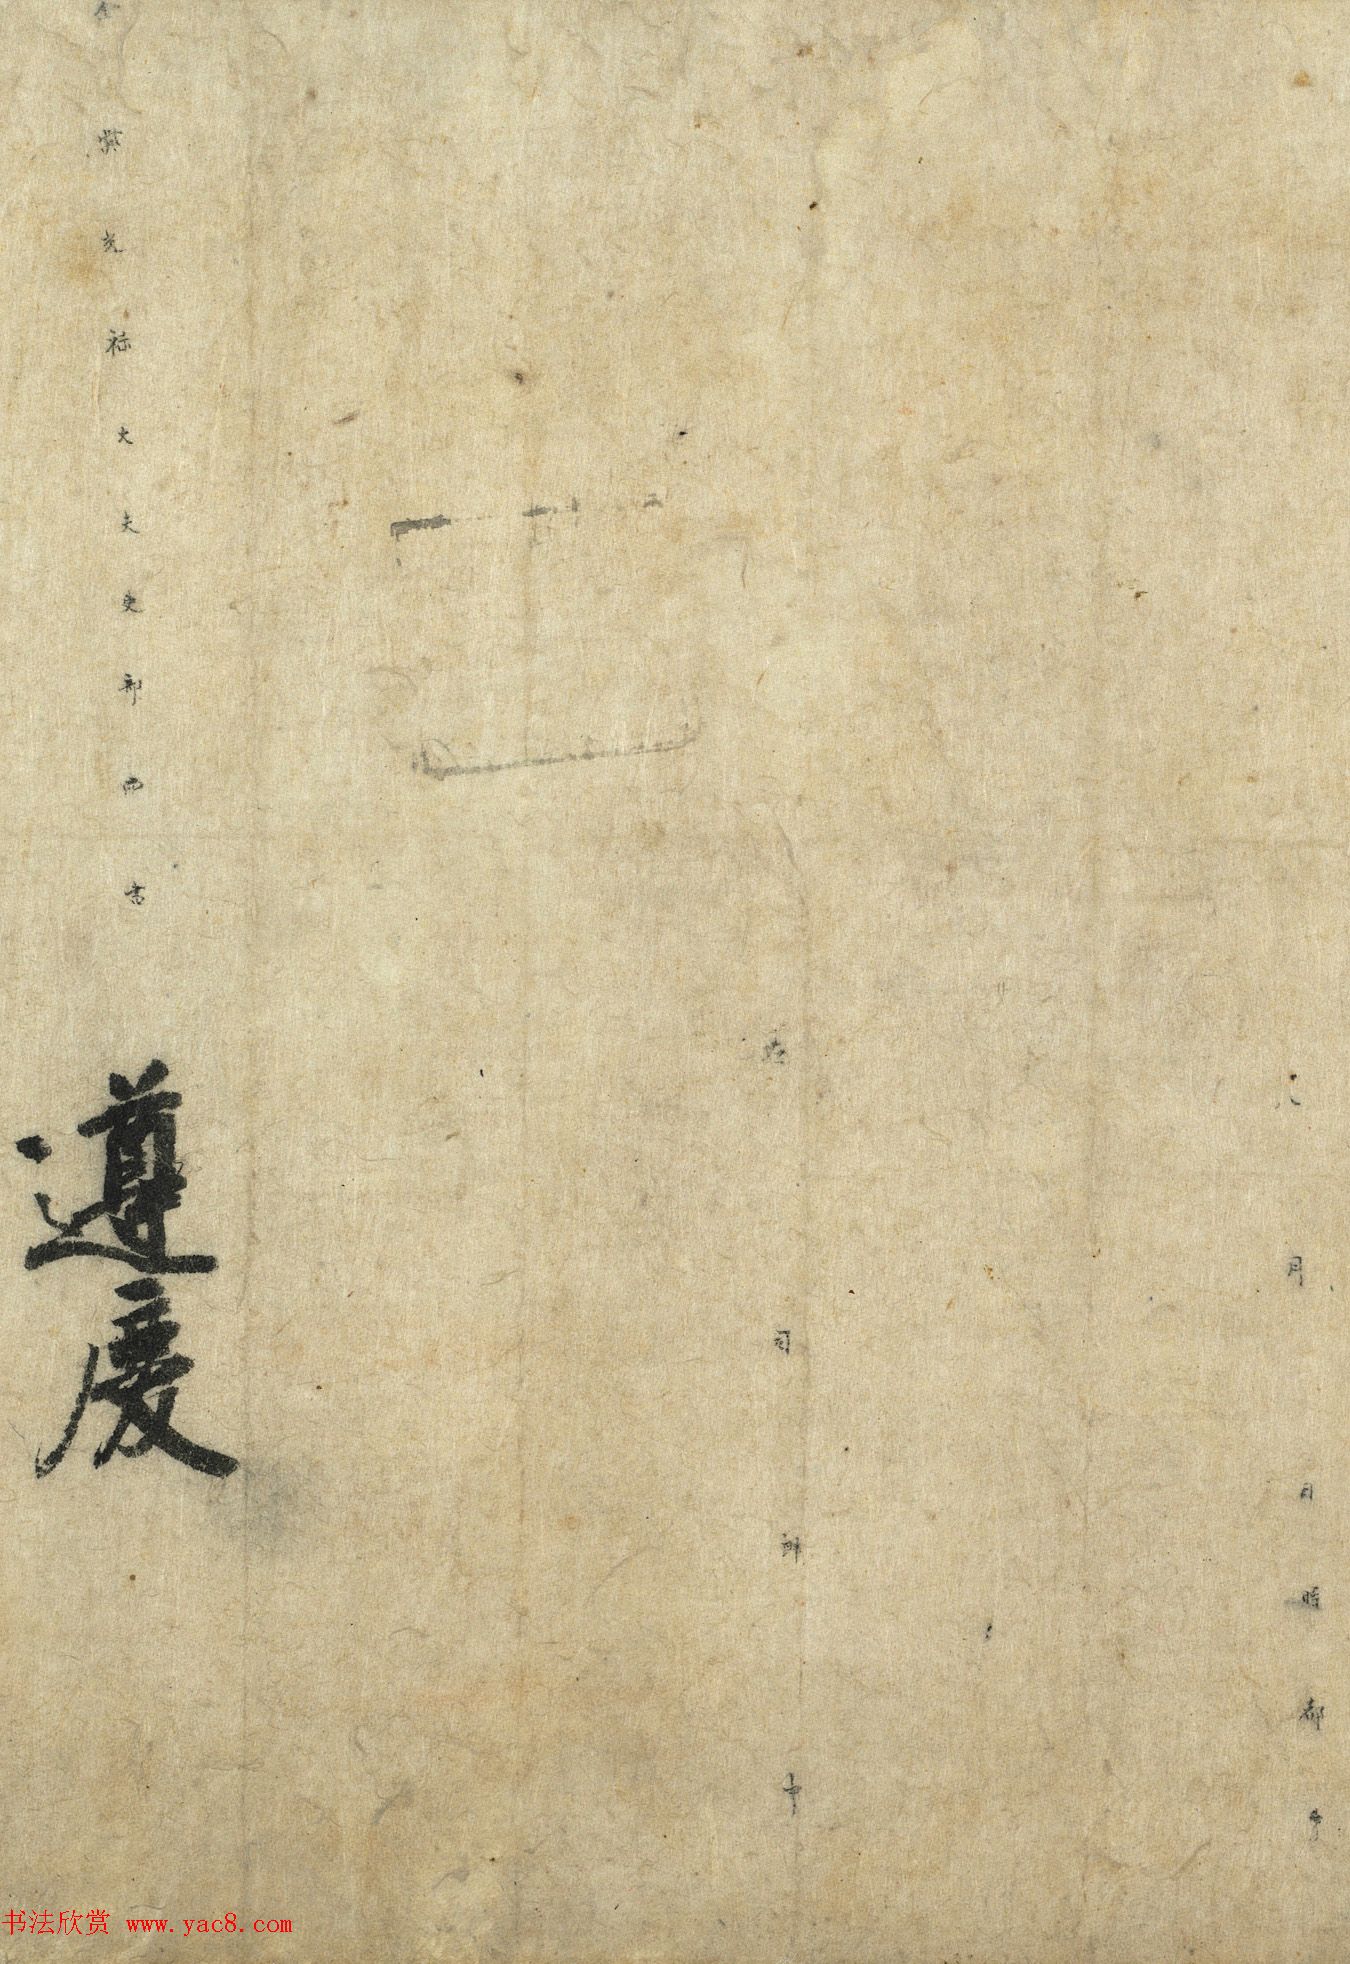 八月 日時都事
左司郎中
金紫光祿大夫吏部尚書
遵慶
书法欣赏 www.yac8.com